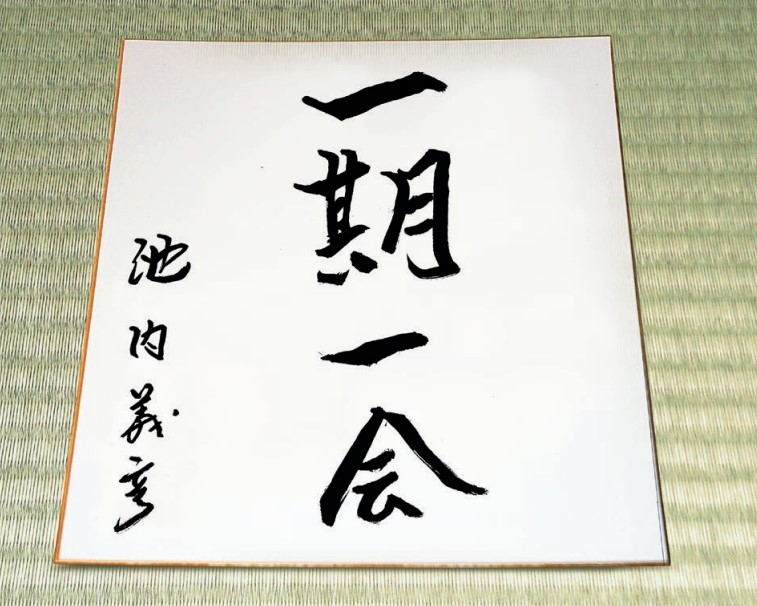 一期一会
池内義彦